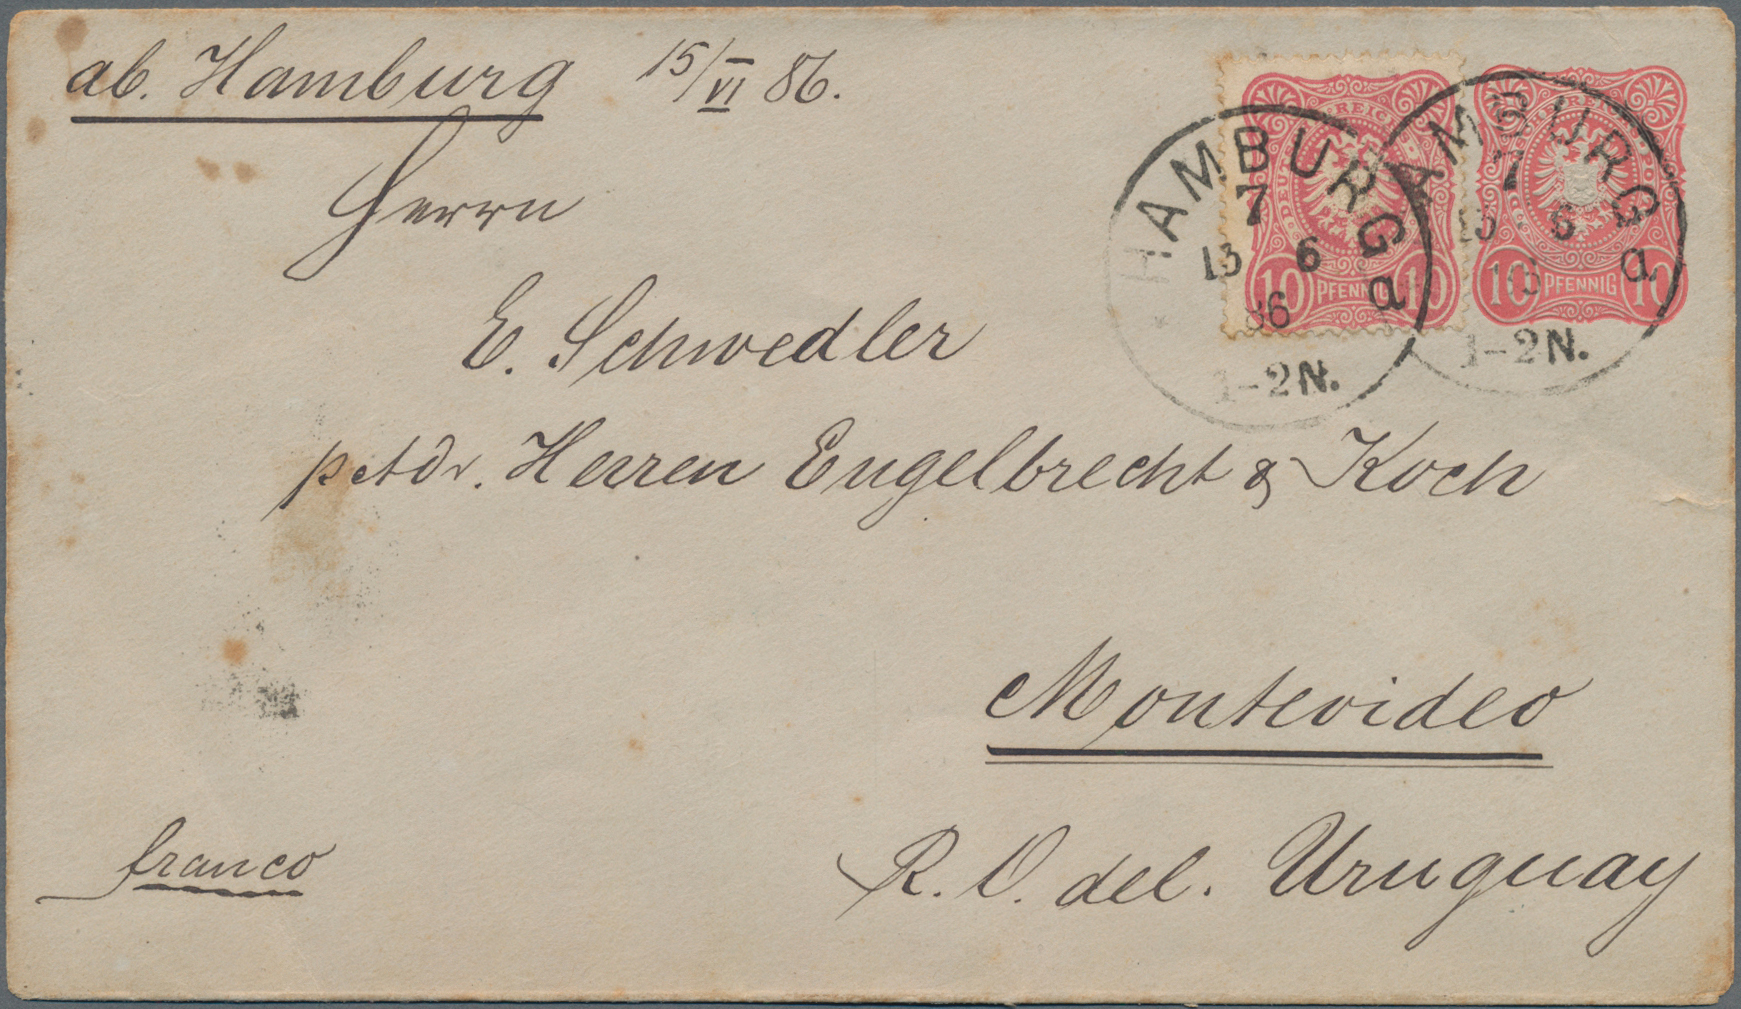 ab. Hamburg 15/VI 86.
Herrn
E. Schwedler
Herren Engelbrecht & Koch
Montevideo
R. O. del. Uruguay
franco
HAMBURG a
7
13 6
86
1-2N.
HAMBURG a
7
13 6
86
1-2N.
REICHS
10 PFENNIG 10
10 PFENNIG 10